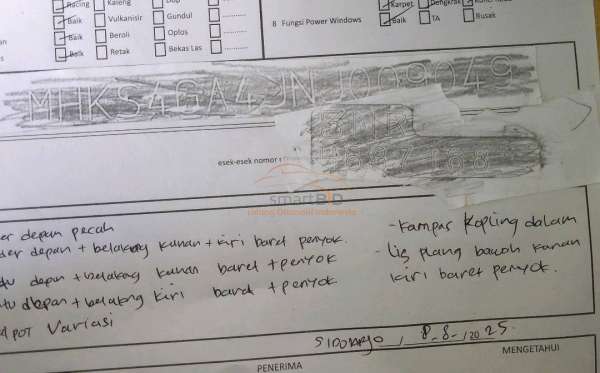 Racing Kaleng Dop
Baik Vulkanisir Gundul
Baik Beroli Oplos
Baik Retak Bekas Las
Karpet Dengkrak
8 Fungsi Power Windows Baik TA Rusak
MHKS4GA4JNJ009049
esek-esek nomor
smartBID
Lelang Otomotif Indonesia
depan pecah
depan + belakang kanan + kiri baret penyok.
depan + belakang kanan baret + penyok
depan + belakang kiri baret + penyok
Variasi
- Kampas Kopling dalam
- Lis plang bawah kanan
kiri baret penyok.
SIDOARJO, 8-8-/2025.
PENERIMA
MENGETAHUI